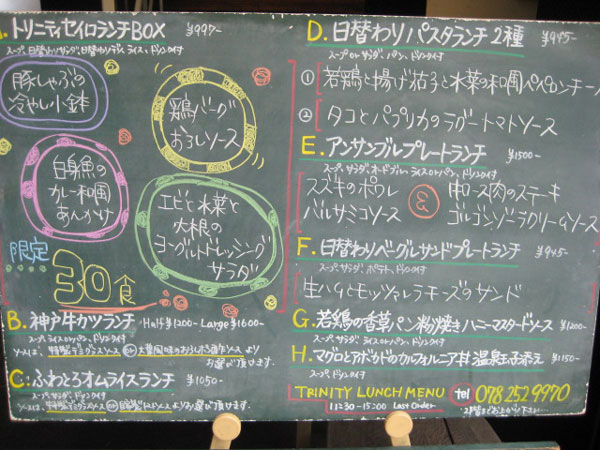 A. トリニティセイロランチBOX ¥997-
スープ、日替わりサラダ、日替わりデリ、ライス、ドリンク付
豚しゃぶの
冷やし小鉢
鶏バーグ
おろしソース
白身魚の
カレー和風
あんかけ
エビと水菜と
大根の
ヨーグルトドレッシング
サラダ
限定
30食
B. 神戸牛カツランチ Half ¥1200- Large ¥1600-
スープ、ライスorパン、ドリンク付
ソースは、特製デミグラスソース or 大葉風味のおろしポン酢ソース より
お選び頂けます。
C. ふわとろオムライスランチ ¥1050-
スープ、サラダ、ドリンク付
ソースは、特製デミグラスソース or 自家製トマトソースよりお選び頂けます。
D. 日替わりパスタランチ 2種 ¥945-
スープ or サラダ、パン、ドリンク付
① 若鶏と揚げ茄子と水菜の和風ペペロンチーノ
② タコとパプリカのラグートマトソース
E. アンサンブルプレートランチ ¥1500-
スープ、サラダ、オードブル、ライスorパン、ドリンク付
スズキのポワレ
バルサミコソース
&
牛ロース肉のステーキ
ゴルゴンゾーラクリームソース
F. 日替わりベーグルサンドプレートランチ ¥945-
スープ、サラダ、ポテト、ドリンク付
生ハムとモッツァレラチーズのサンド
G. 若鶏の香草パン粉焼きハニーマスタードソース ¥1200-
H. マグロとアボカドのカルフォルニア丼 温泉玉子添え ¥1150-
TRINITY LUNCH MENU
11:30-15:00 Last Order
tel 078 252 9970